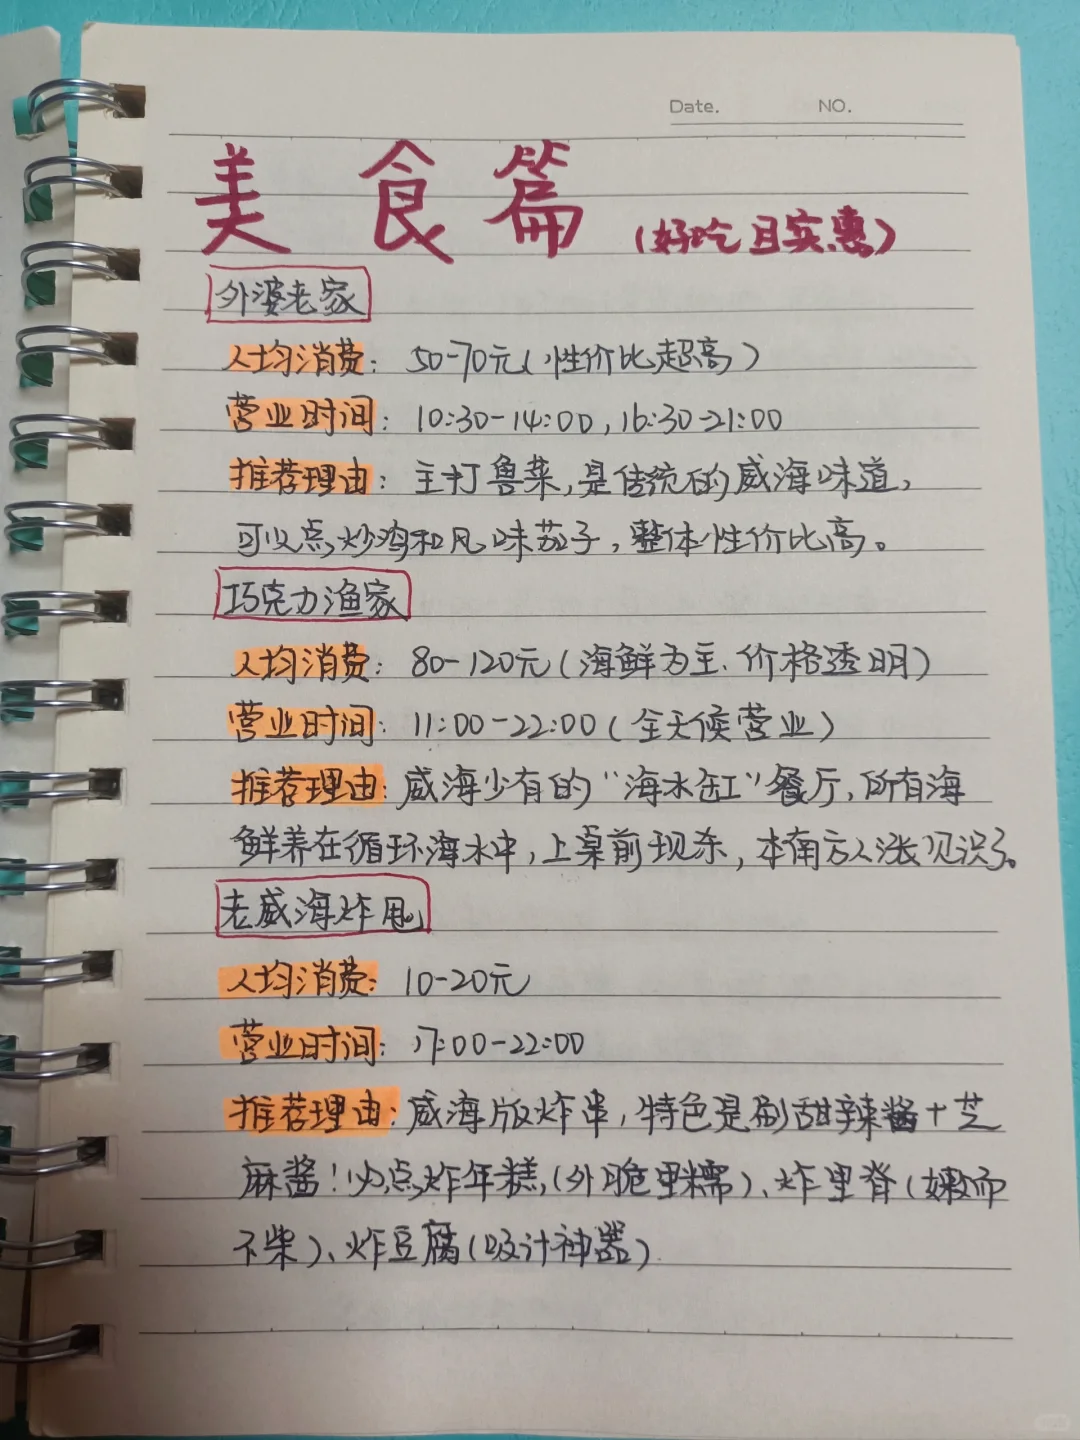 Date. NO.
美食篇(好吃且实惠)
外婆老家
人均消费: 50-70元(性价比超高)
营业时间: 10:30-14:00,16:30-21:00
推荐理由: 主打鲁菜,是传统的威海味道,
可以点炒鸡和风味茄子,整体性价比高。
巧克力渔家
人均消费: 80-120元(海鲜为主、价格透明)
营业时间: 11:00-22:00(全天候营业)
推荐理由: 威海少有的“海水缸”餐厅,所有海
鲜养在循环海水中,上桌前现杀,本南方人涨见识了。
老威海炸甩
人均消费: 10-20元
营业时间: 17:00-22:00
推荐理由: 威海版炸串,特色是刷甜辣酱+芝
麻酱!必点炸年糕(外脆里糯)、炸里脊(嫩而
不柴)、炸豆腐(吸汁神器)